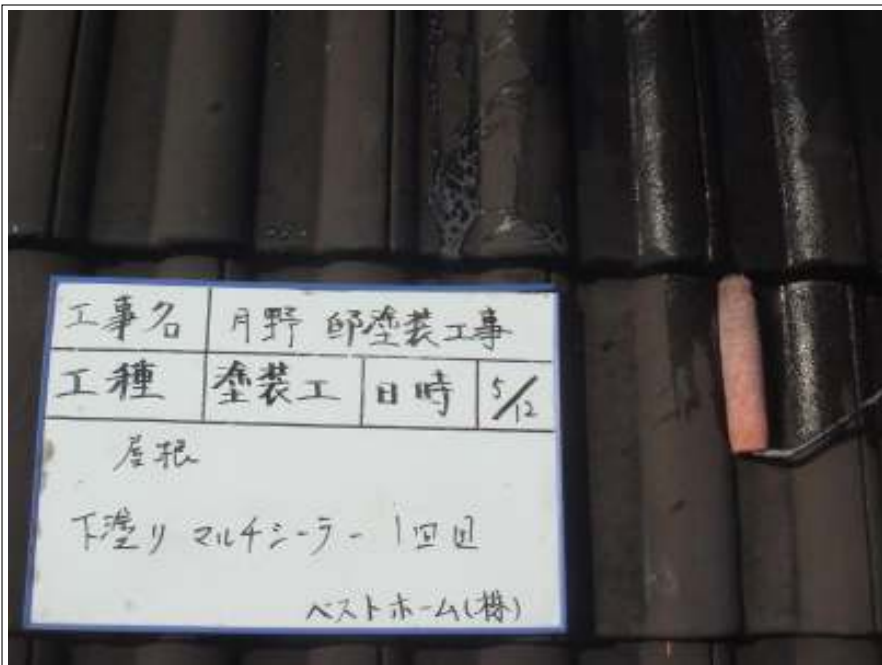 工事名 月野 邸塗装工事
工種 塗装工 日時 5/12
屋根
下塗り マルチシーラー 1回目
ベストホーム(株)